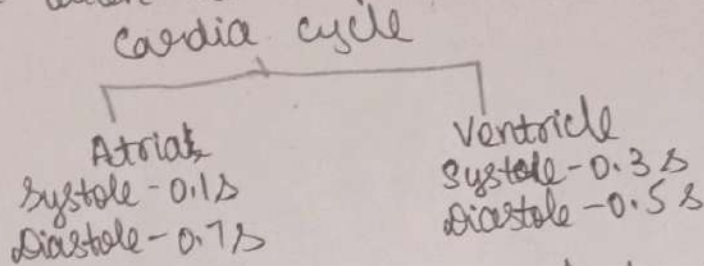 Cardia cycle
Atrial
Systole - 0.1s
Diastole - 0.7s
Ventricle
Systole - 0.3 s
Diastole - 0.5 s